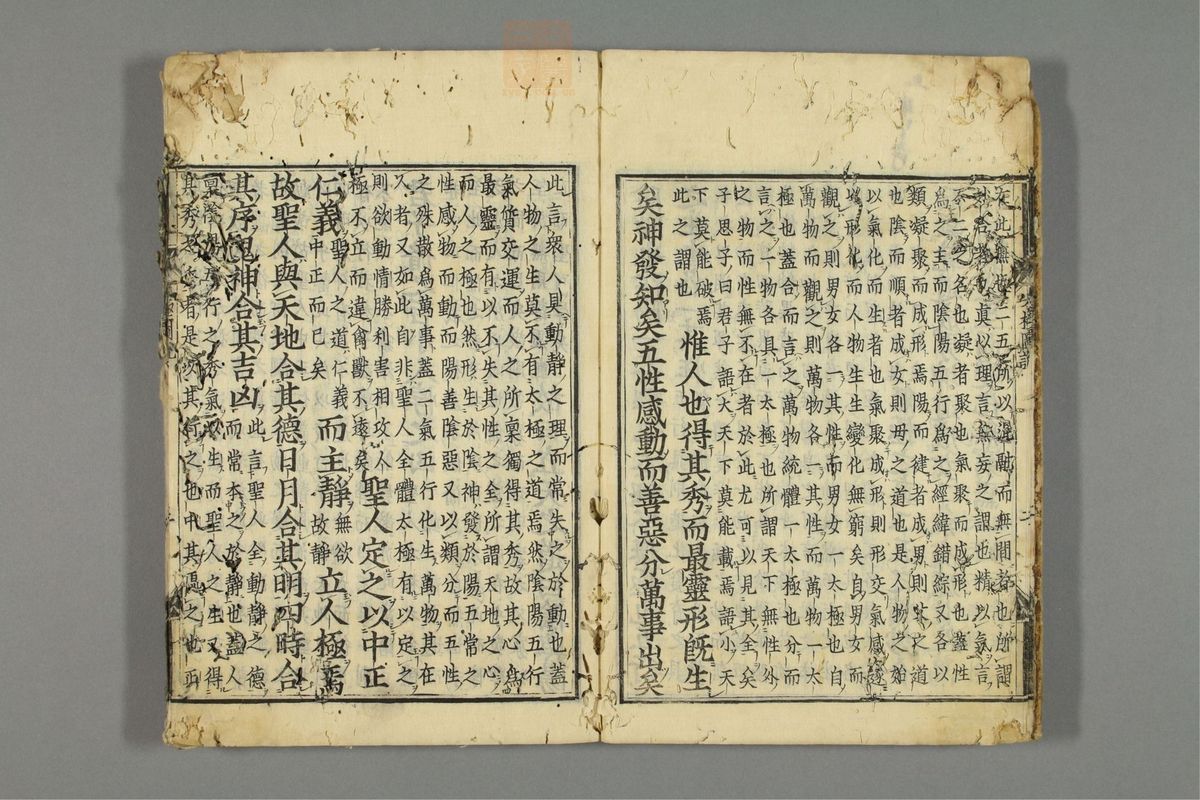 在此無極二五所以混融而無間者也所謂
妙合者也真以理言無妄之謂也精以氣言
不二之名也凝者聚也氣聚而成形也蓋性
爲之主而陰陽五行爲之經緯錯綜又各以
類凝聚而成形焉陽而健者成男則父之道
也陰而順者成女則母之道也是人物之始
以氣化而生者也氣聚成形則形交氣感遂
以形化而人物生生變化無窮矣自男女而
觀之則男女各一其性而男女一太極也自
萬物而觀之則萬物各一其性而萬物一太
極也蓋合而言之萬物統體一太極也分而
言之一物各具一太極也所謂天下無性外
之物而性無不在者於此尤可以見其全矣
子思子曰君子語大天下莫能載焉語小天
下莫能破焉
此之謂也
惟人也得其秀而最靈形旣生
矣神發知矣五性感動而善惡分萬事出矣
此言衆人具動靜之理而常失之於動也蓋
人物之生莫不有太極之道焉然陰陽五行
氣質交運而人之所稟獨得其秀故其心爲
最靈而有以不失其性之全所謂天地之心
而人之極也然形生於陰神發於陽五常之
性感物而動而陽善陰惡又以類分而五性
之殊散爲萬事蓋二氣五行化生萬物其在
人者又如此自非聖人全體太極有以定之
則欲動情勝利害相攻人
極不立而違禽獸不遠矣
聖人定之以中正
仁義
聖人之道仁義
中正而已矣
而主靜
無欲
故靜
立人極焉
故聖人與天地合其德日月合其明四時合
其序鬼神合其吉凶
此言聖人全動靜之德
而常本之於靜也蓋人
稟陰陽五行之秀氣以生而聖人之生又得
其秀之秀者是以其行之也中其處之也正